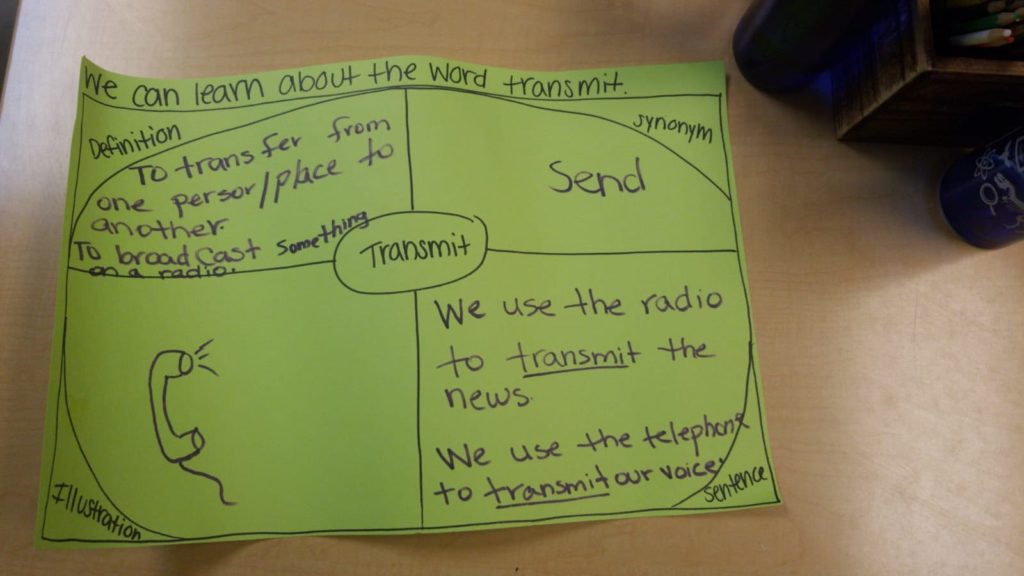 We can learn about the word transmit.
Definition
To transfer from
one person/place to
another.
To broadcast something
on a radio.
Synonym
Send
Transmit
Illustration
We use the radio
to transmit the
news.
We use the telephone
to transmit our voice.
Sentence